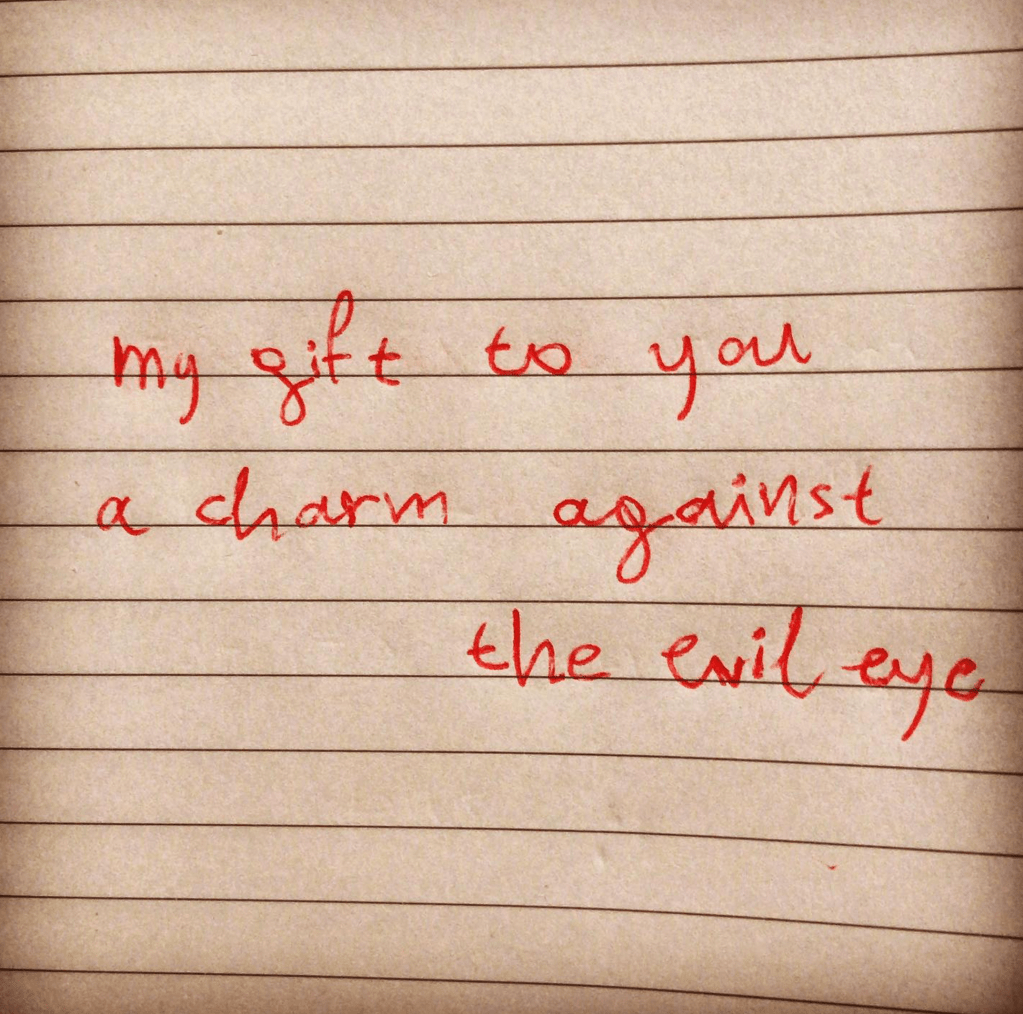 my gift to you
a charm against
the evil eye